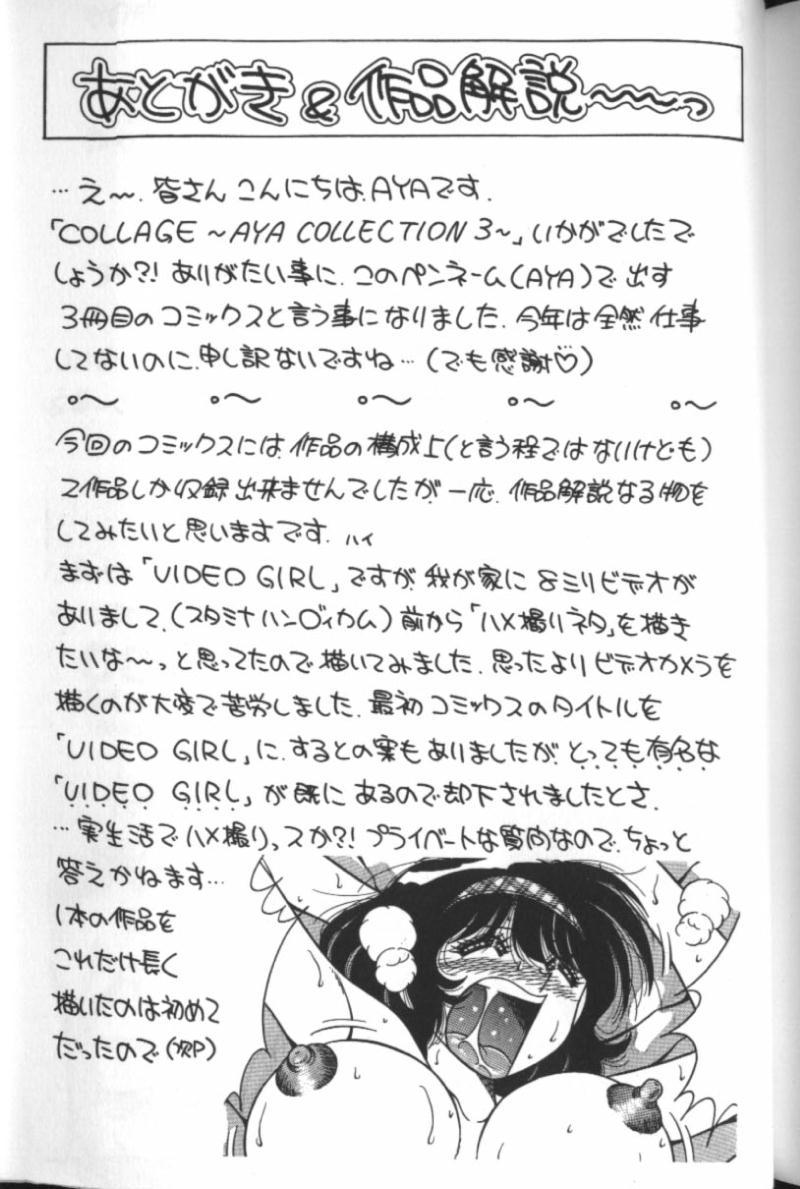 あとがき&作品解説〜〜〜っ
…え〜、皆さんこんにちは、AYAです。
「COLLAGE 〜AYA COLLECTION 3〜」いかがでしたで
しょうか?! ありがたい事に、このペンネーム(AYA)で出す
3冊目のコミックスと言う事になりました、今年は全然仕事
してないのに、申し訳ないですね…(でも感謝♡)
今回のコミックスには、作品の構成上(と言う程ではないけども)
2作品しか収録出来ませんでしたが、一応、作品解説なる物を
してみたいと思いますです、ハイ
まずは「VIDEO GIRL」ですが、我が家に8ミリビデオが
ありまして、(スタミナハンディカム)前から「ハメ撮りネタ」を描き
たいな〜っと思ってたので描いてみました、思ったよりビデオカメラを
描くのが大変で苦労しました、最初コミックスのタイトルを
「VIDEO GIRL」に、するとの案もありましたが、とっても有名な
「VIDEO GIRL」が既にあるので却下されましたとさ、
…実生活でハメ撮りっスか?! プライベートな質問なので、ちょっと
答えかねます…
1本の作品を
これだけ長く
描いたのは初めて
だったので(次P)